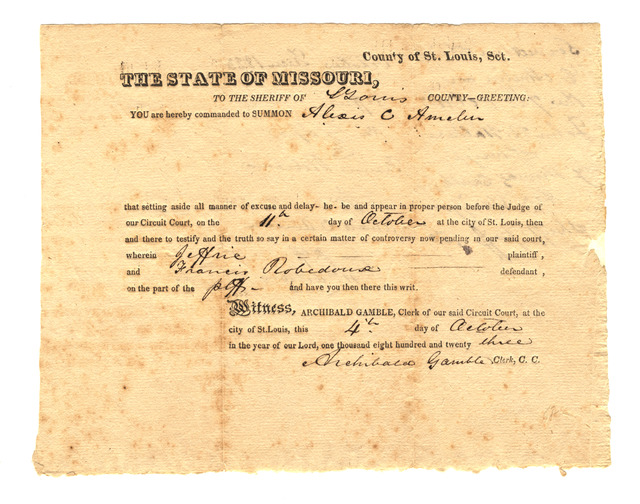 County of St. Louis, Sct.
THE STATE OF MISSOURI,
TO THE SHERIFF OF St Louis COUNTY—GREETING:
YOU are hereby commanded to SUMMON Alexis C Amelin
that setting aside all manner of excuse and delay- he- be and appear in proper person before the Judge of
our Circuit Court, on the 11th day of October at the city of St. Louis, then
and there to testify and the truth so say in a certain matter of controversy now pending in our said court,
wherein Jeffrie plaintiff,
and Francis Robedoux defendant,
on the part of the plff- and have you then there this writ.
Witness, ARCHIBALD GAMBLE, Clerk of our said Circuit Court, at the
city of St.Louis, this 4th day of October
in the year of our Lord, one thousand eight hundred and twenty three
Archibald Gamble Clerk, C. C.